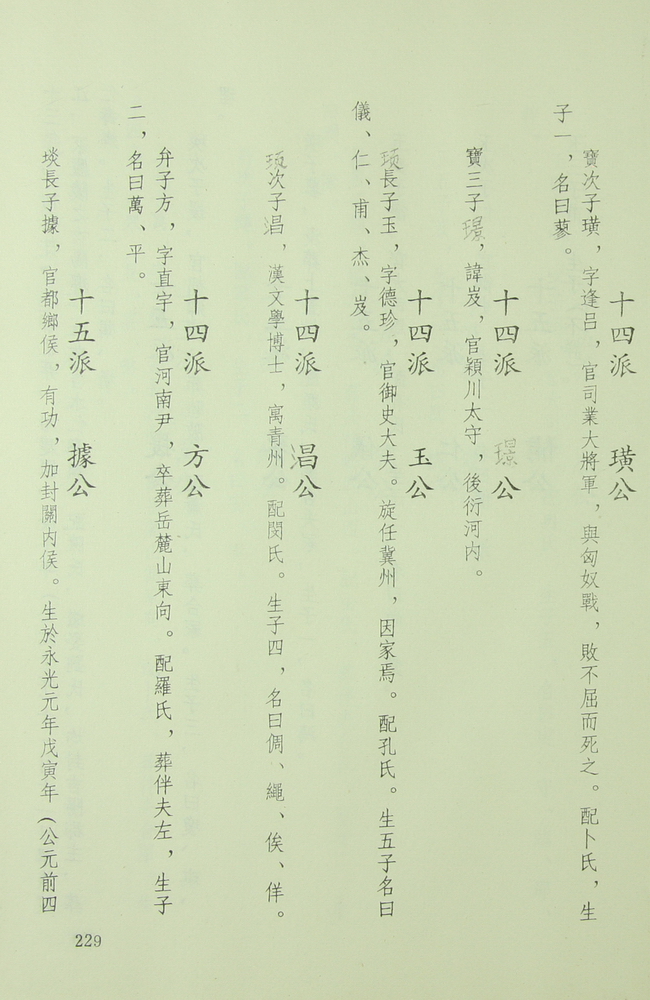 十四派　璜公
寶次子璜，字逢呂，官司業大將軍，與匈奴戰，敗不屈而死之。配卜氏，生
子一，名曰蓼。
十四派　璟公
寶三子璟，諱岌，官穎川太守，後衍河內。
十四派　玉公
長子玉，字德珍，官御史大夫。旋任冀州，因家焉。配孔氏。生五子名曰
儀、仁、甫、杰、岌。
十四派　淐公
次子淐，漢文學博士，寓青州。配閔氏。生子四，名曰倜、繩、俟、佯。
十四派　方公
弁子方，字直宇，官河南尹，卒葬岳麓山東向。配羅氏，葬伴夫左，生子
二，名曰萬、平。
十五派　據公
埮長子據，官都鄉侯，有功，加封關內侯。生於永光元年戊寅年（公元前四
229